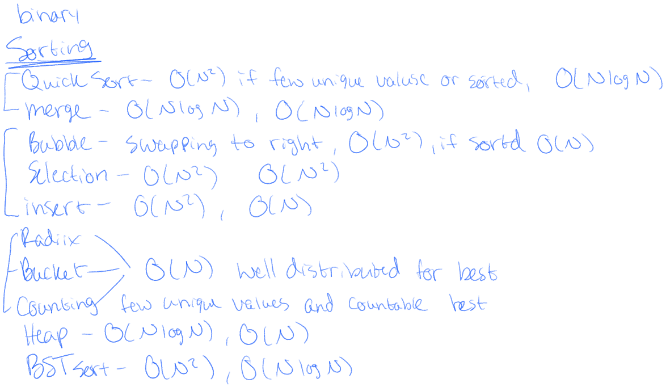 binary
Sorting
Quick Sort - O(N²) if few unique valuse or sorted, O(N log N)
merge - O(N log N), O(N log N)
Bubble - swapping to right, O(N²), if sortd O(N)
Selection - O(N²) O(N²)
insert - O(N²), O(N)
Radiix
Bucket O(N) well distributed for best
Counting few unique values and countable best
Heap - O(N log N), O(N)
BST sort - O(N²), O(N log N)